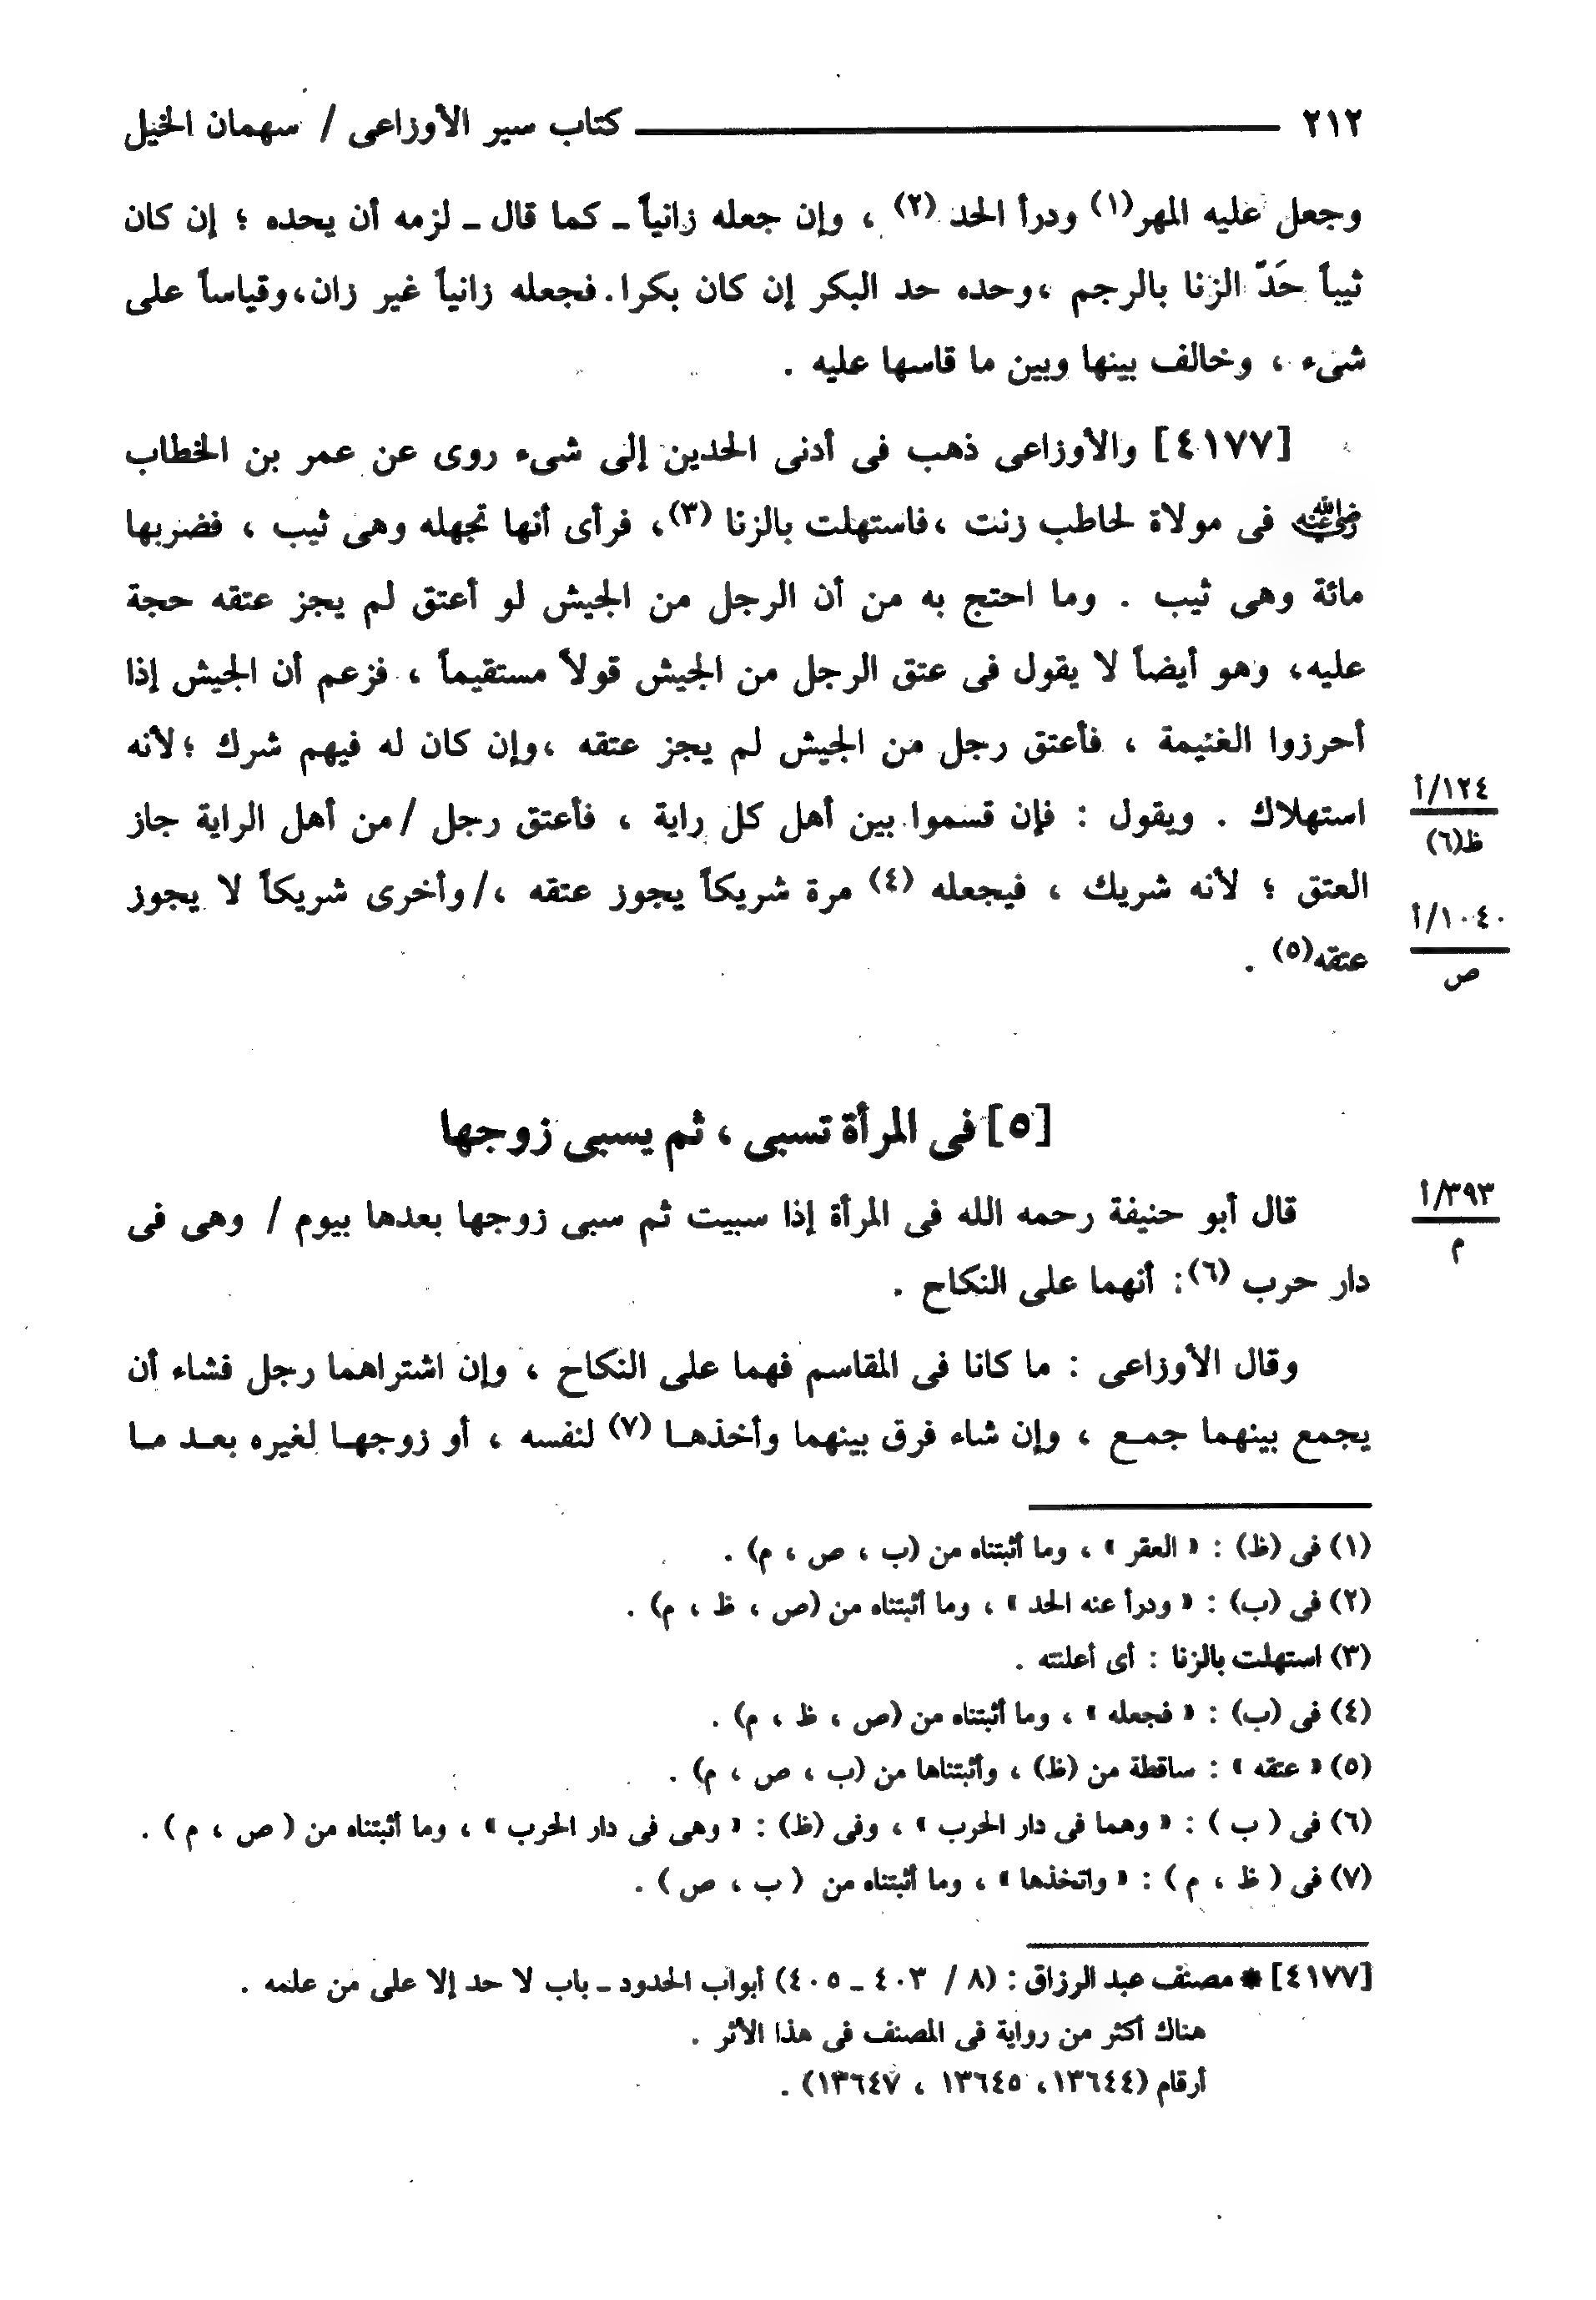 ٢١٢ كتاب سير الأوزاعى / سهمان الخيل
وجعل عليه المهر(١) ودرأ الحد (٢) ، وإن جعله زانياً ـ كما قال ـ لزمه أن يحده ؛ إن كان
ثيباً حَدّ الزنا بالرجم ،وحده حد البكر إن كان بكرا. فجعله زانياً غير زان،وقياساً على
شىء ، وخالف بينها وبين ما قاسها عليه .
[٤١٧٧] والأوزاعى ذهب فى أدنى الحدين إلى شىء روى عن عمر بن الخطاب
رضي الله عنه فى مولاة لحاطب زنت ،فاستهلت بالزنا (٣)، فرأى أنها تجهله وهى ثيب ، فضربها
مائة وهى ثيب . وما احتج به من أن الرجل من الجيش لو أعتق لم يجز عتقه حجة
عليه، وهو أيضاً لا يقول فى عتق الرجل من الجيش قولاً مستقيماً ، فزعم أن الجيش إذا
أحرزوا الغنيمة ، فأعتق رجل من الجيش لم يجز عتقه ،وإن كان له فيهم شرك ؛لأنه
استهلاك . ويقول : فإن قسموا بين أهل كل راية ، فأعتق رجل /من أهل الراية جاز
١٢٤/أ
ظ(٦)
العتق ؛ لأنه شريك ، فيجعله (٤) مرة شريكاً يجوز عتقه ،/وأخرى شريكاً لا يجوز
١٠٤٠/أ
ص
عتقه(٥) .
[٥] فى المرأة تسبى ، ثم يسبى زوجها
قال أبو حنيفة رحمه الله فى المرأة إذا سبيت ثم سبى زوجها بعدها بيوم / وهى فى
٣٩٣/أ
م
دار حرب (٦): أنهما على النكاح .
وقال الأوزاعى : ما كانا فى المقاسم فهما على النكاح ، وإن اشتراهما رجل فشاء أن
يجمع بينهما جمـع ، وإن شاء فرق بينهما وأخذهـا (٧) لنفسه ، أو زوجهـا لغيره بعـد مـا
(١) فى (ظ) : « العقر » ، وما أثبتناه من (ب ، ص ، م) .
(٢) فى (ب) : « ودرأ عنه الحد » ، وما أثبتناه من (ص ، ظ ، م) .
(٣) استهلت بالزنا : أى أعلنته .
(٤) فى (ب) : « فجعله » ، وما أثبتناه من (ص ، ظ ، م) .
(٥) « عتقه » : ساقطة من (ظ) ، وأثبتناها من (ب ، ص ، م) .
(٦) فى ( ب ) : « وهما فى دار الحرب » ، وفى (ظ) : « وهى فى دار الحرب » ، وما أثبتناه من ( ص ، م ) .
(٧) فى ( ظ ، م ) : « واتخذها » ، وما أثبتناه من ( ب ، ص ) .
[٤١٧٧] * مصنف عبد الرزاق : (٨ / ٤٠٣ ـ ٤٠٥) أبواب الحدود ـ باب لا حد إلا على من علمه .
هناك أكثر من رواية فى المصنف فى هذا الأثر .
أرقام (١٣٦٤٤، ١٣٦٤٥ ، ١٣٦٤٧) .